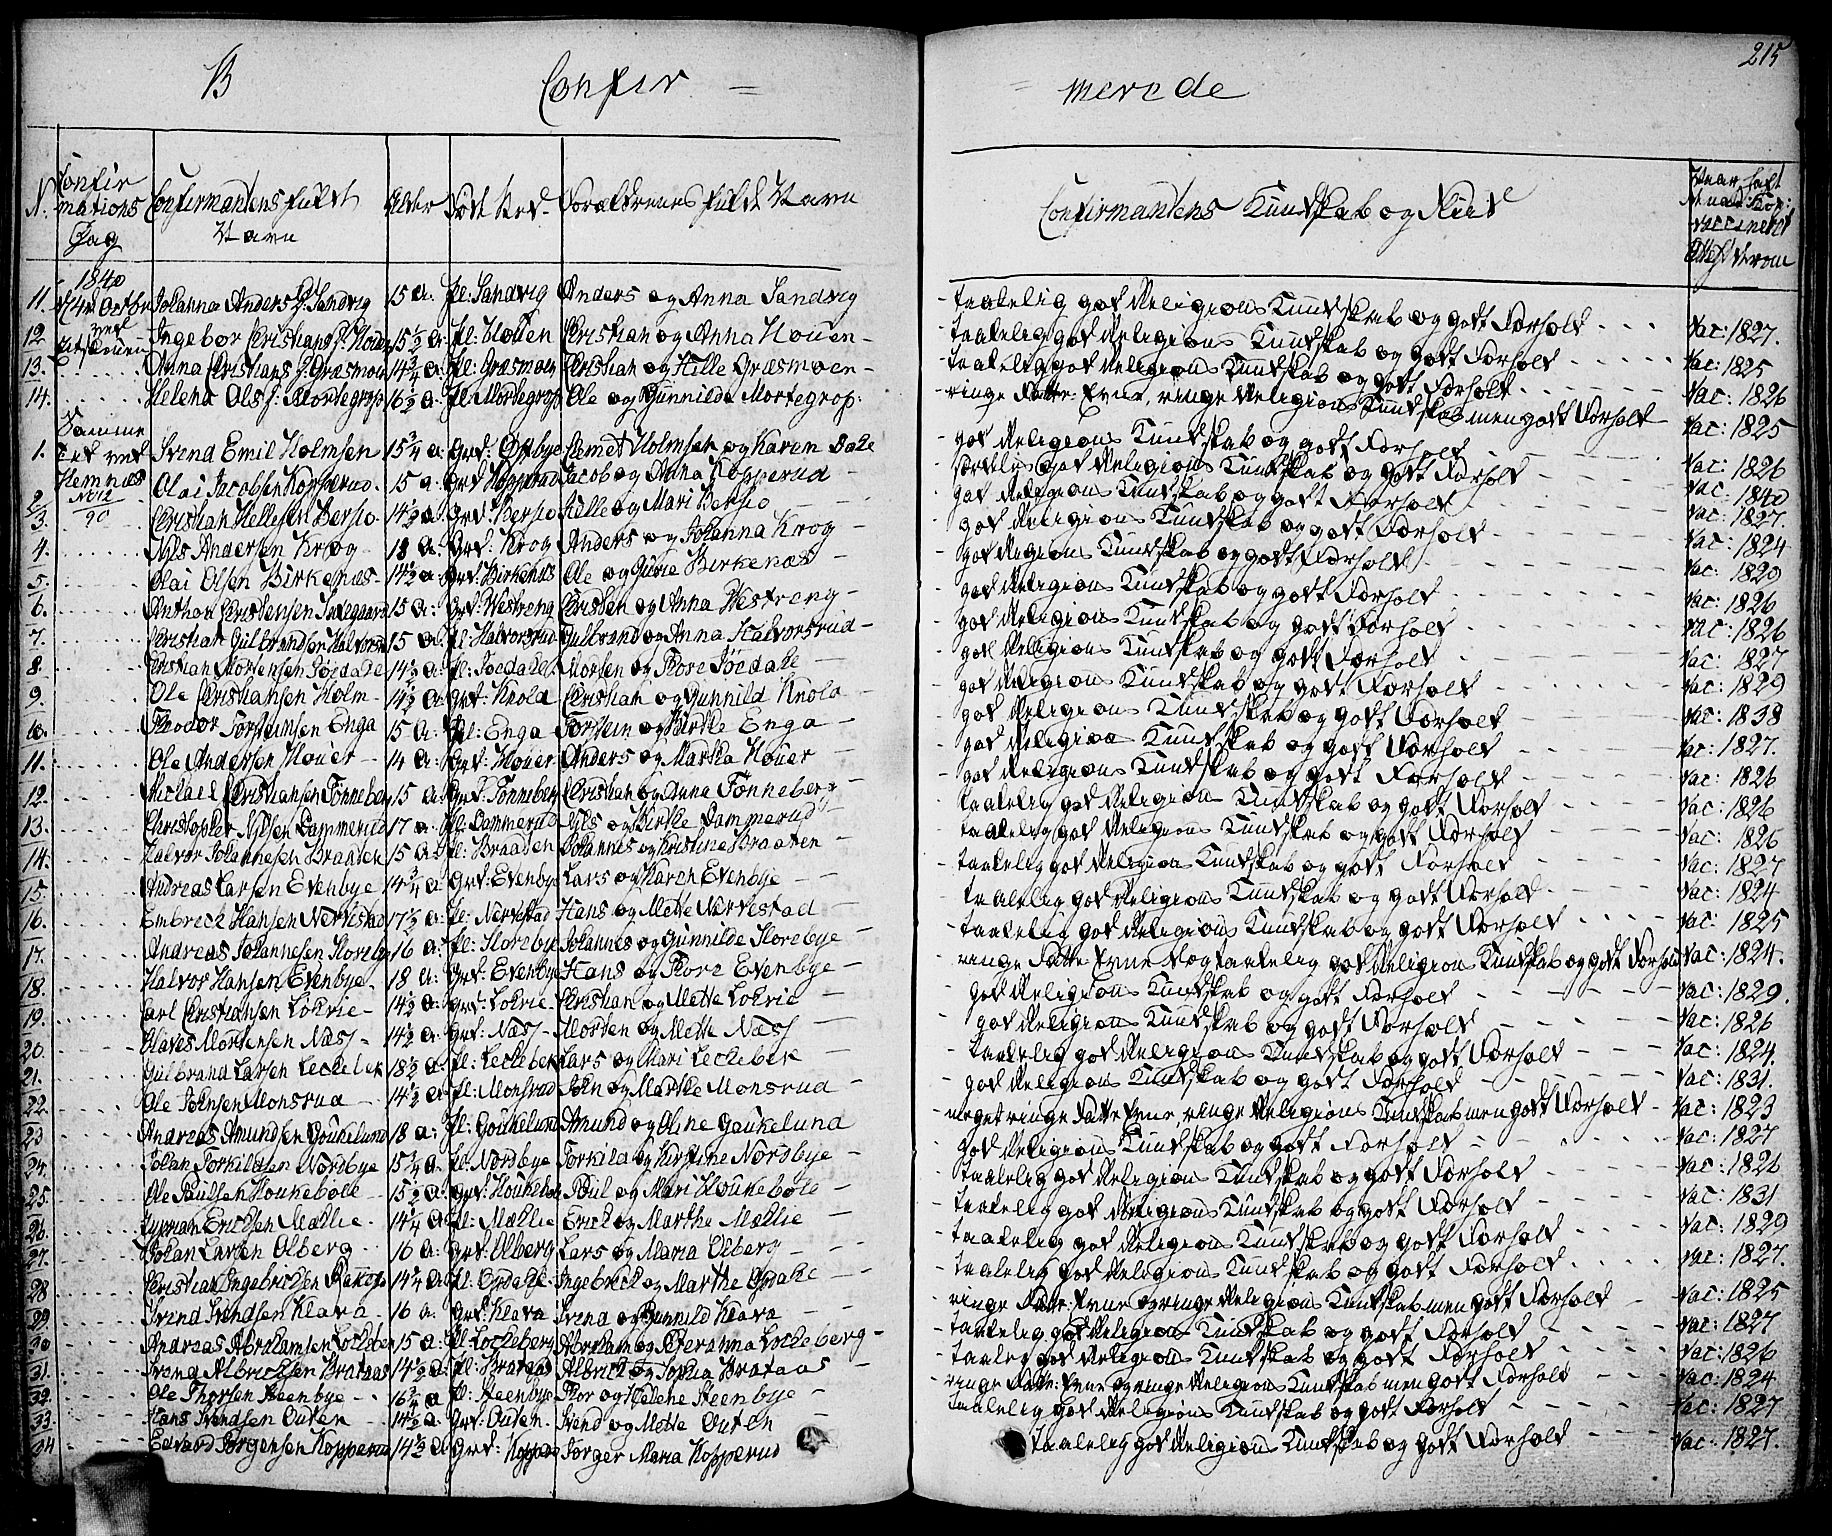 215
B Confir = = merede
N. Confirmations Dag Confirmantens fulde Navn Alder Fødested Forældrenes fulde Navn Confirmantens Kundskab og Flid
1840
11. Johanna Andersd: Sandvig 15 a: pl: Sandvig Anders og Anna Sandvig - taalelig god Religions Kundskab og godt Forhold Vac: 1827.
12 Ingebor Christiansd: Houen 15½ a: pl: Houen Christian og Anna Houen - taalelig god Religions Kundskab og godt Forhold Vac: 1825
13. Anna Christiansd: Græsmoen 14¾ a: pl: Græsmoen Christian og Hille Græsmoen - taalelig god Religions Kundskab og godt Forhold Vac: 1826
14. Helena Olsd: Mortegrop 16½ a: pl: Mortegrop Ole og Gunnilde Mortegrop: ringe Fatte: Evne, ringe Religions Kundskab men godt Forhold Vac: 1825
Samme Tid ved Hemnæs
1. Svend Emil Holmsen 15¾ a Grd: Clemet Holmsen og Karen god Religions Kundskab og godt Forhold Vac: 1826
2 Olai Jacobsen Kopperud 15 a Grd Kopperud Jacob og Anna Kopperud - god Religions Kundskab og godt Forhold Vac: 1840
3. Christian Hellesen Bersio 14½ a Grd: Bersio Hille og Mari Bersio god Religions Kundskab og godt Forhold Vac: 1827.
4. Nils Andersen Krog 18 a: Grd: Krog Anders og Johanna Krog god Religions Kundskab og godt Forhold Vac: 1824
5. Olai Olsen Birkenæs 14½ a Grd: Birkenæs Ole og Gurie Birkenæs god Religions Kundskab og godt Forhold Vac: 1829
6. Anthon Christensen 15 a: Grd: Westreng Christen og Anna Westreng god Religions Kundskab og godt Forhold Vac: 1826
7. Christian Gulbrandsen Halvorsrud 15 a: pl: Halvorsrud Gulbrand og Anna Halvorsrud god Religions Kundskab og godt Forhold Vac: 1826
8. Christian Mortensen 14½ a: pl: Morten og god Religions Kundskab og godt Forhold Vac: 1827
9. Ole Christiansen Holm 14½ a: Grd: Knold Christian og Gunnild Knold god Religions Kundskab og godt Forhold Vac: 1829
10. Theodor Torsteinsen Enga 15 a: pl: Enga Torstein og Birthe Enga god Religions Kundskab og godt Forhold Vac: 1838
11. Ole Andersen Houer 14 a: Grd: Houer Anders og Martha Houer god Religions Kundskab og godt Forhold Vac: 1827.
12. Michael Christiansen Tønneberg 15 a: Grd: Tønneberg Christian og Anna Tønneberg god Religions Kundskab og godt Forhold Vac: 1826
13. Christopher Nilsen Dammerud 17 a: pl: Dammerud Nils og Birthe Dammerud taalelig god Religions Kundskab og godt Forhold Vac: 1826
14. Halvor Johannesen Braaten 15 a: pl: Braaten Johannes og Kristine Braaten taalelig god Religions Kundskab og godt Forhold Vac: 1826
15. Andreas Larsen Evenbye 14¾ a: Grd: Evenbye Lars og Karen Evenbye taalelig god Religions Kundskab og godt Forhold Vac: 1827
16. Embreck Hansen Nærvestad 17½ a: pl: Nærvestad Hans og Mette Nærvestad taalelig god Religions Kundskab og godt Forhold Vac: 1824
17. Andreas Johannesen Horebye 16 a: pl: Horebye Johannes og Gunnilde Horebye taalelig god Religions Kundskab og godt Forhold Vac: 1825
18. Halvor Hansen Evenbye 18 a: Grd: Evenbye Hans og Evenbye ringe Fatte Evne taalelig god Religions Kundskab og godt Forhold Vac: 1824.
19. Carl Christiansen Løkrie 14½ a: Grd: Løkrie Christian og Mette Løkrie god Religions Kundskab og godt Forhold Vac: 1829.
20. Olaves Mortensen Næss 14½ a: Grd: Næss Morten og Mette Næss god Religions Kundskab og godt Forhold Vac: 1826
21. Gulbrand Larsen Lecheber 18½ a: pl: Lecheber Lars og Mari Lecheber taalelig god Religions Kundskab og godt Forhold Vac: 1824.
22. Ole Johnsen Monsrud 14½ a: pl: Monsrud John og Marthe Monsrud god Religions Kundskab og godt Forhold Vac: 1831.
23 Andreas Amundsen Goukelund 18 a: pl: Goukelund Amund og Oline Goukelund meget ringe Fatte Evne, ringe Religions Kundskab men godt Forhold Vac: 1823
24. Johan Torkildsen Nordbye 15¼ a: pl: Nordbye Torkild og Kirstine Nordbye god Religions Kundskab og godt Forhold Vac: 1827
25. Ole Paulsen Houkebøle 15½ a: Grd: Paul og Mari Houkebøle taalelig god Religions Kundskab og godt Forhold Vac: 1826
26. Ericksen Mællie 14¼ a: pl: Mællie Erick og Marthe Mællie taalelig god Religions Kundskab og godt Forhold Vac: 1831
27. Johan Larsen Olberg 16 a: Grd: Olberg Lars og Maria Olberg taalelig god Religions Kundskab og godt Forhold Vac: 1829
28 Christian Engebricksen 14¼ a: pl: Opdahle Ingebrick og Marthe Opdahle taalelig god Religions Kundskab og godt Forhold Vac: 1827.
29 Svend Svendsen Klava 16 a. Grd: Klava Svend og Gunnild Klava ringe Fatte: Evne og ringe Religions Kundskab men godt Forhold Vac: 1825
30 Andreas Abrahamsen Locheberg 15 a: pl: Locheberg Abraham og Locheberg taalelig god Religions Kundskab og godt Forhold Vac: 1827
31. Svend Albricksen Brataas 14½ a: pl: Brataas Albrick og Sophia Brataas taalelig god Religions Kundskab og godt Forhold Vac: 1826
32. Ole Thorsen Steenbye 16¾ a pl: Steenbye Thor og Helene Steenbye ringe Fatte: Evne og ringe Religions Kundskab men godt Forhold Vac: 1824
33. Hans Svendsen Outen 14½ a: Grd: Outen Svend og Mette Outen taalelig god Religions Kundskab og godt Forhold Vac: 1827
34 Edvard Jørgensen Kopperud 14½ a: Grd: Jørgen Maria Kopperud taalelig god Religions Kundskab og godt Forhold Vac: 1827.